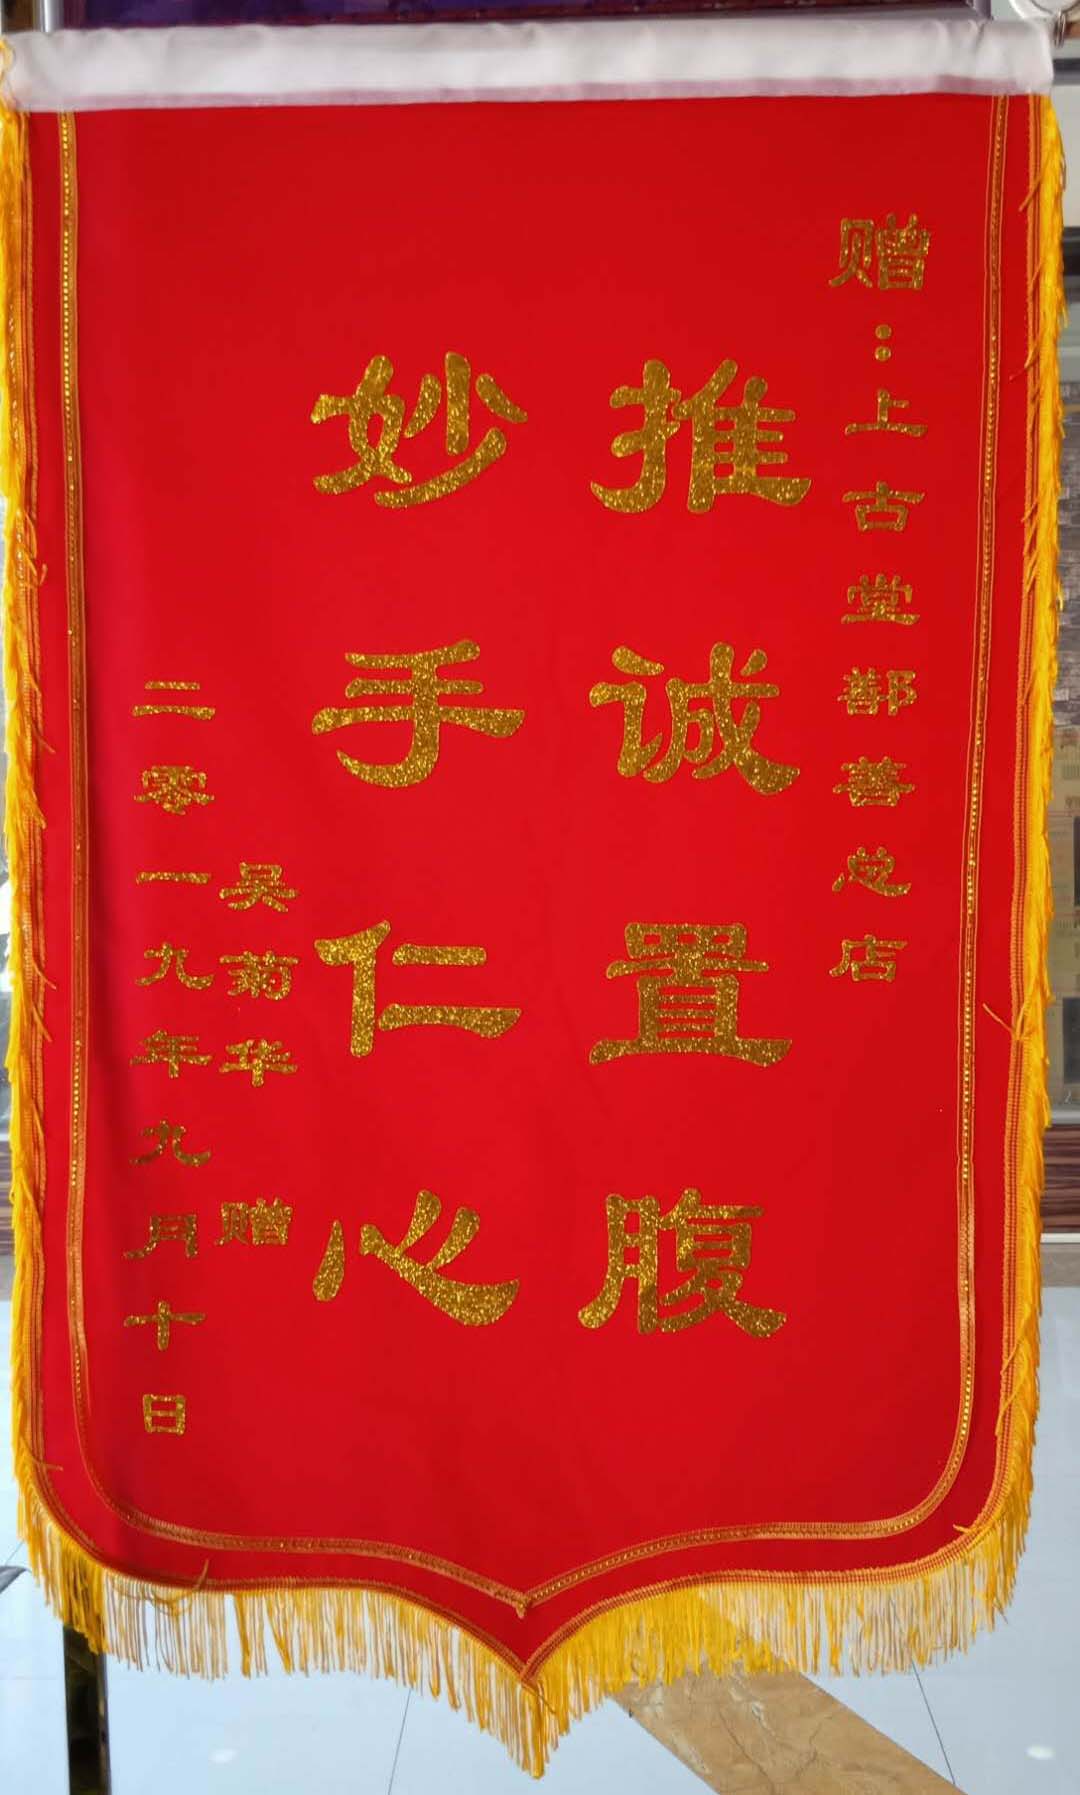 赠：上古堂鄯善总店
推诚置腹
妙手仁心
吴菊华 赠
二零一九年九月十日